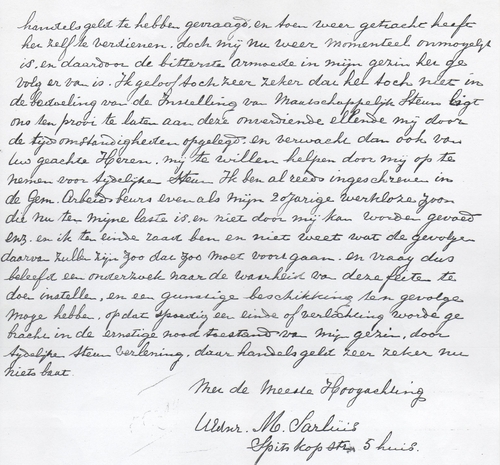 handelsgeld te hebben gevraagd, en toen weer getracht heeft
het zelf te verdienen. doch mij nu weer momenteel onmogelijk
is, en daardoor de bitterste armoede in mijn gezin het ge
volg er van is. Ik geloof toch zeer zeker dat het toch niet in
de bedoeling van de Instelling van Maatschappelijk Steun ligt
ons ten prooi te laten aan deze onverdiende ellende mij door
de tijdomstandigheden opgelegd. en verwacht dan ook van
Uw geachte Heren. mij te willen helpen door mij op te
nemen voor tijdelijke Steun. Ik ben al reeds ingeschreven in
de Gem. Arbeidsbeurs even als mijn 20 jarige werkloze zoon
die nu ten mijne laste is, en niet door mij kan worden gevoed
enz. en ik ten einde raad ben en niet weet wat de gevolgen
daarvan zullen zijn zoo dat zoo moet voortgaan. en vraag dus
beleefd een onderzoek naar de waarheid van deze feiten te
doen instellen, en een gunstige beschikking ten gevolge
moge hebben, op dat spoedig een einde of verlichting worde ge
bracht in de ernstige noodtoestand van mijn gezin, door
tijdelijke Steun verlening, daar handelsgeld zeer zeker nu
niets baat.
Met de Meeste Hoogachting
UEdnr. M. Sarluis
Spitskopstr 5 huis.